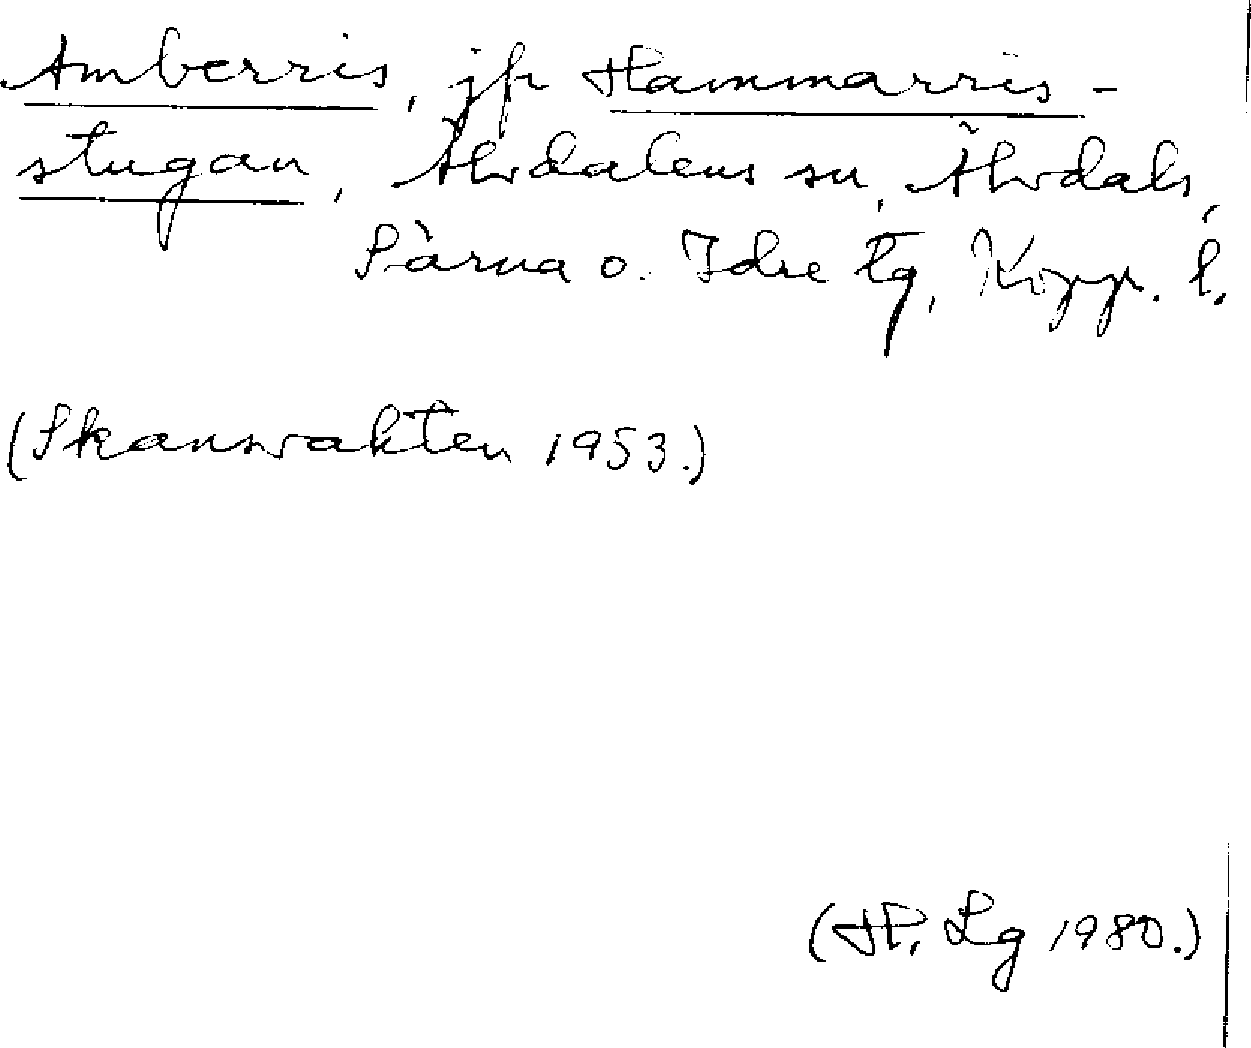 Amberris, jfr Hammarris-
stugan, Älvdalens sn, Älvdals,
Särna o. Idre tg, Kopp. l.
(Skansvakten 1953.)
(H. Lg 1980.)